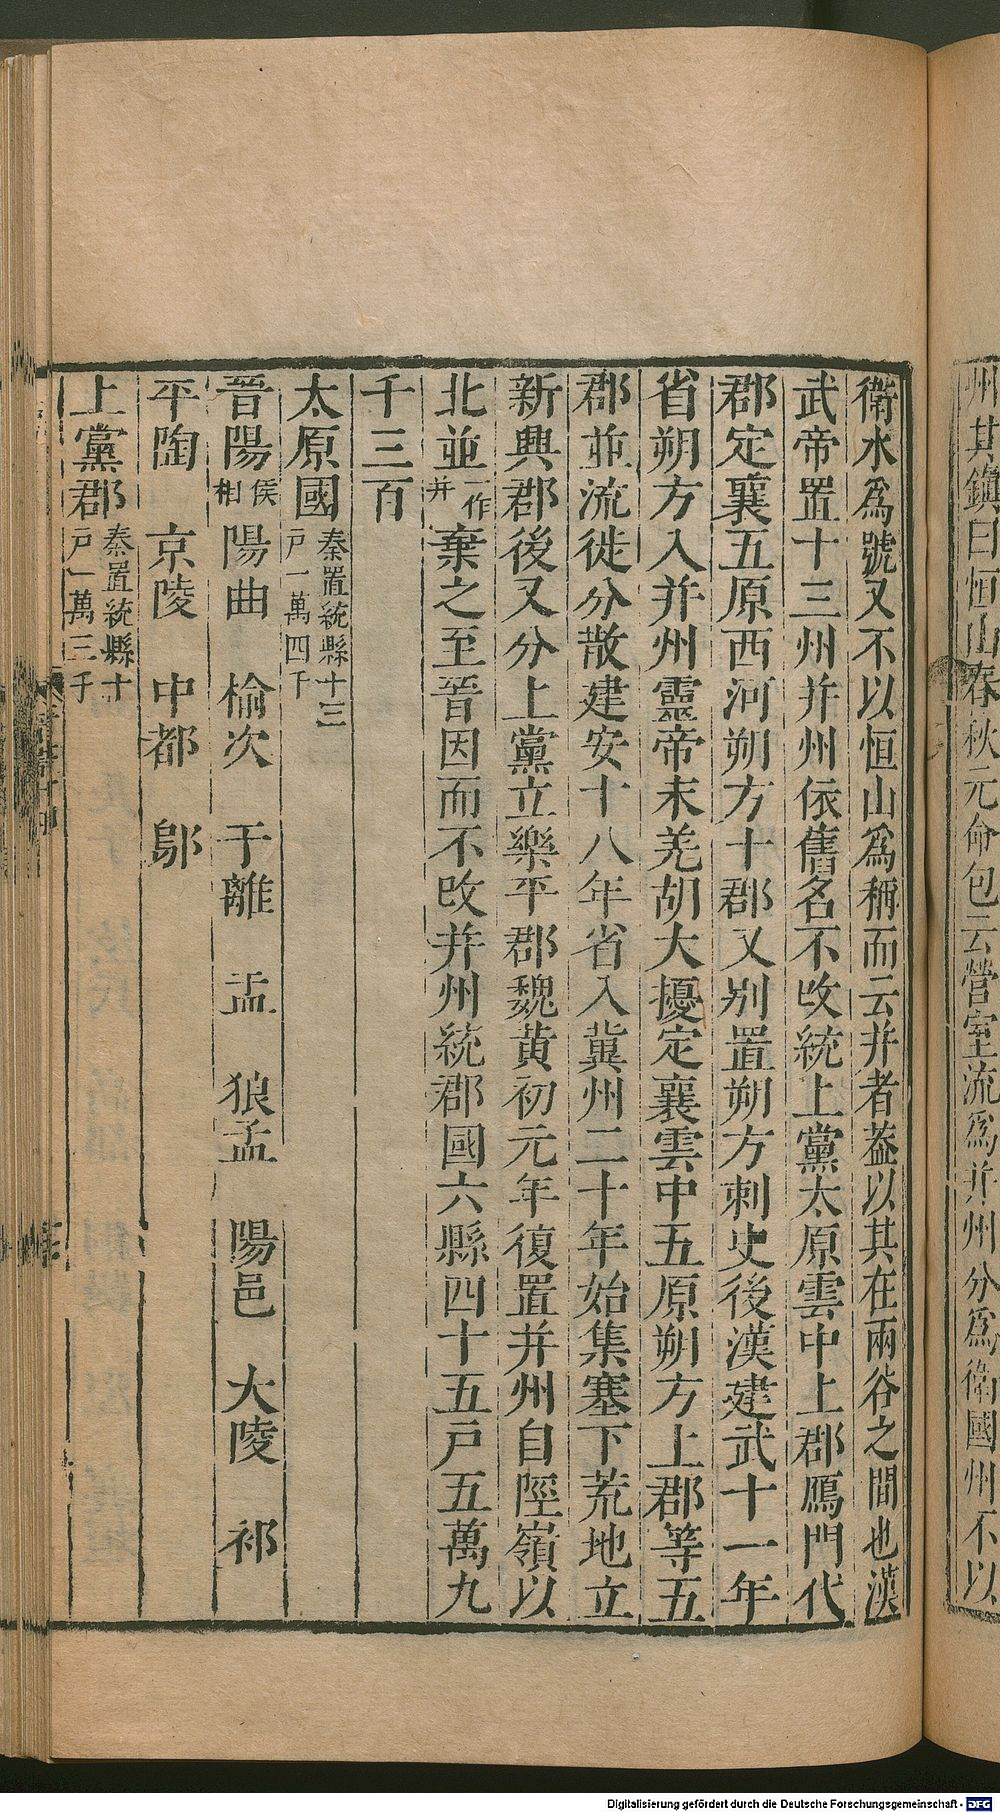 州其鎮曰恒山春秋元命包云營室流爲并州分爲衛國州不以
衛水爲號又不以恒山爲稱而云并者葢以其在兩谷之間也漢
武帝置十三州并州依舊名不改統上黨太原雲中上郡鴈門代
郡定襄五原西河朔方十郡又別置朔方刺史後漢建武十一年
省朔方入并州靈帝末羌胡大擾定襄雲中五原朔方上郡等五
郡並流徙分散建安十八年省入冀州二十年始集塞下荒地立
新興郡後又分上黨立樂平郡魏黃初元年復置并州自陘嶺以
北並一作并棄之至晉因而不改并州統郡國六縣四十五戸五萬九
千三百
太原國秦置統縣十三戸一萬四千
晉陽侯相 陽曲 榆次 于離 盂 狼孟 陽邑 大陵 祁
平陶 京陵 中都 鄔
上黨郡秦置統縣十戸一萬三千
Digitalisierung gefördert durch die Deutsche Forschungsgemeinschaft - DFG